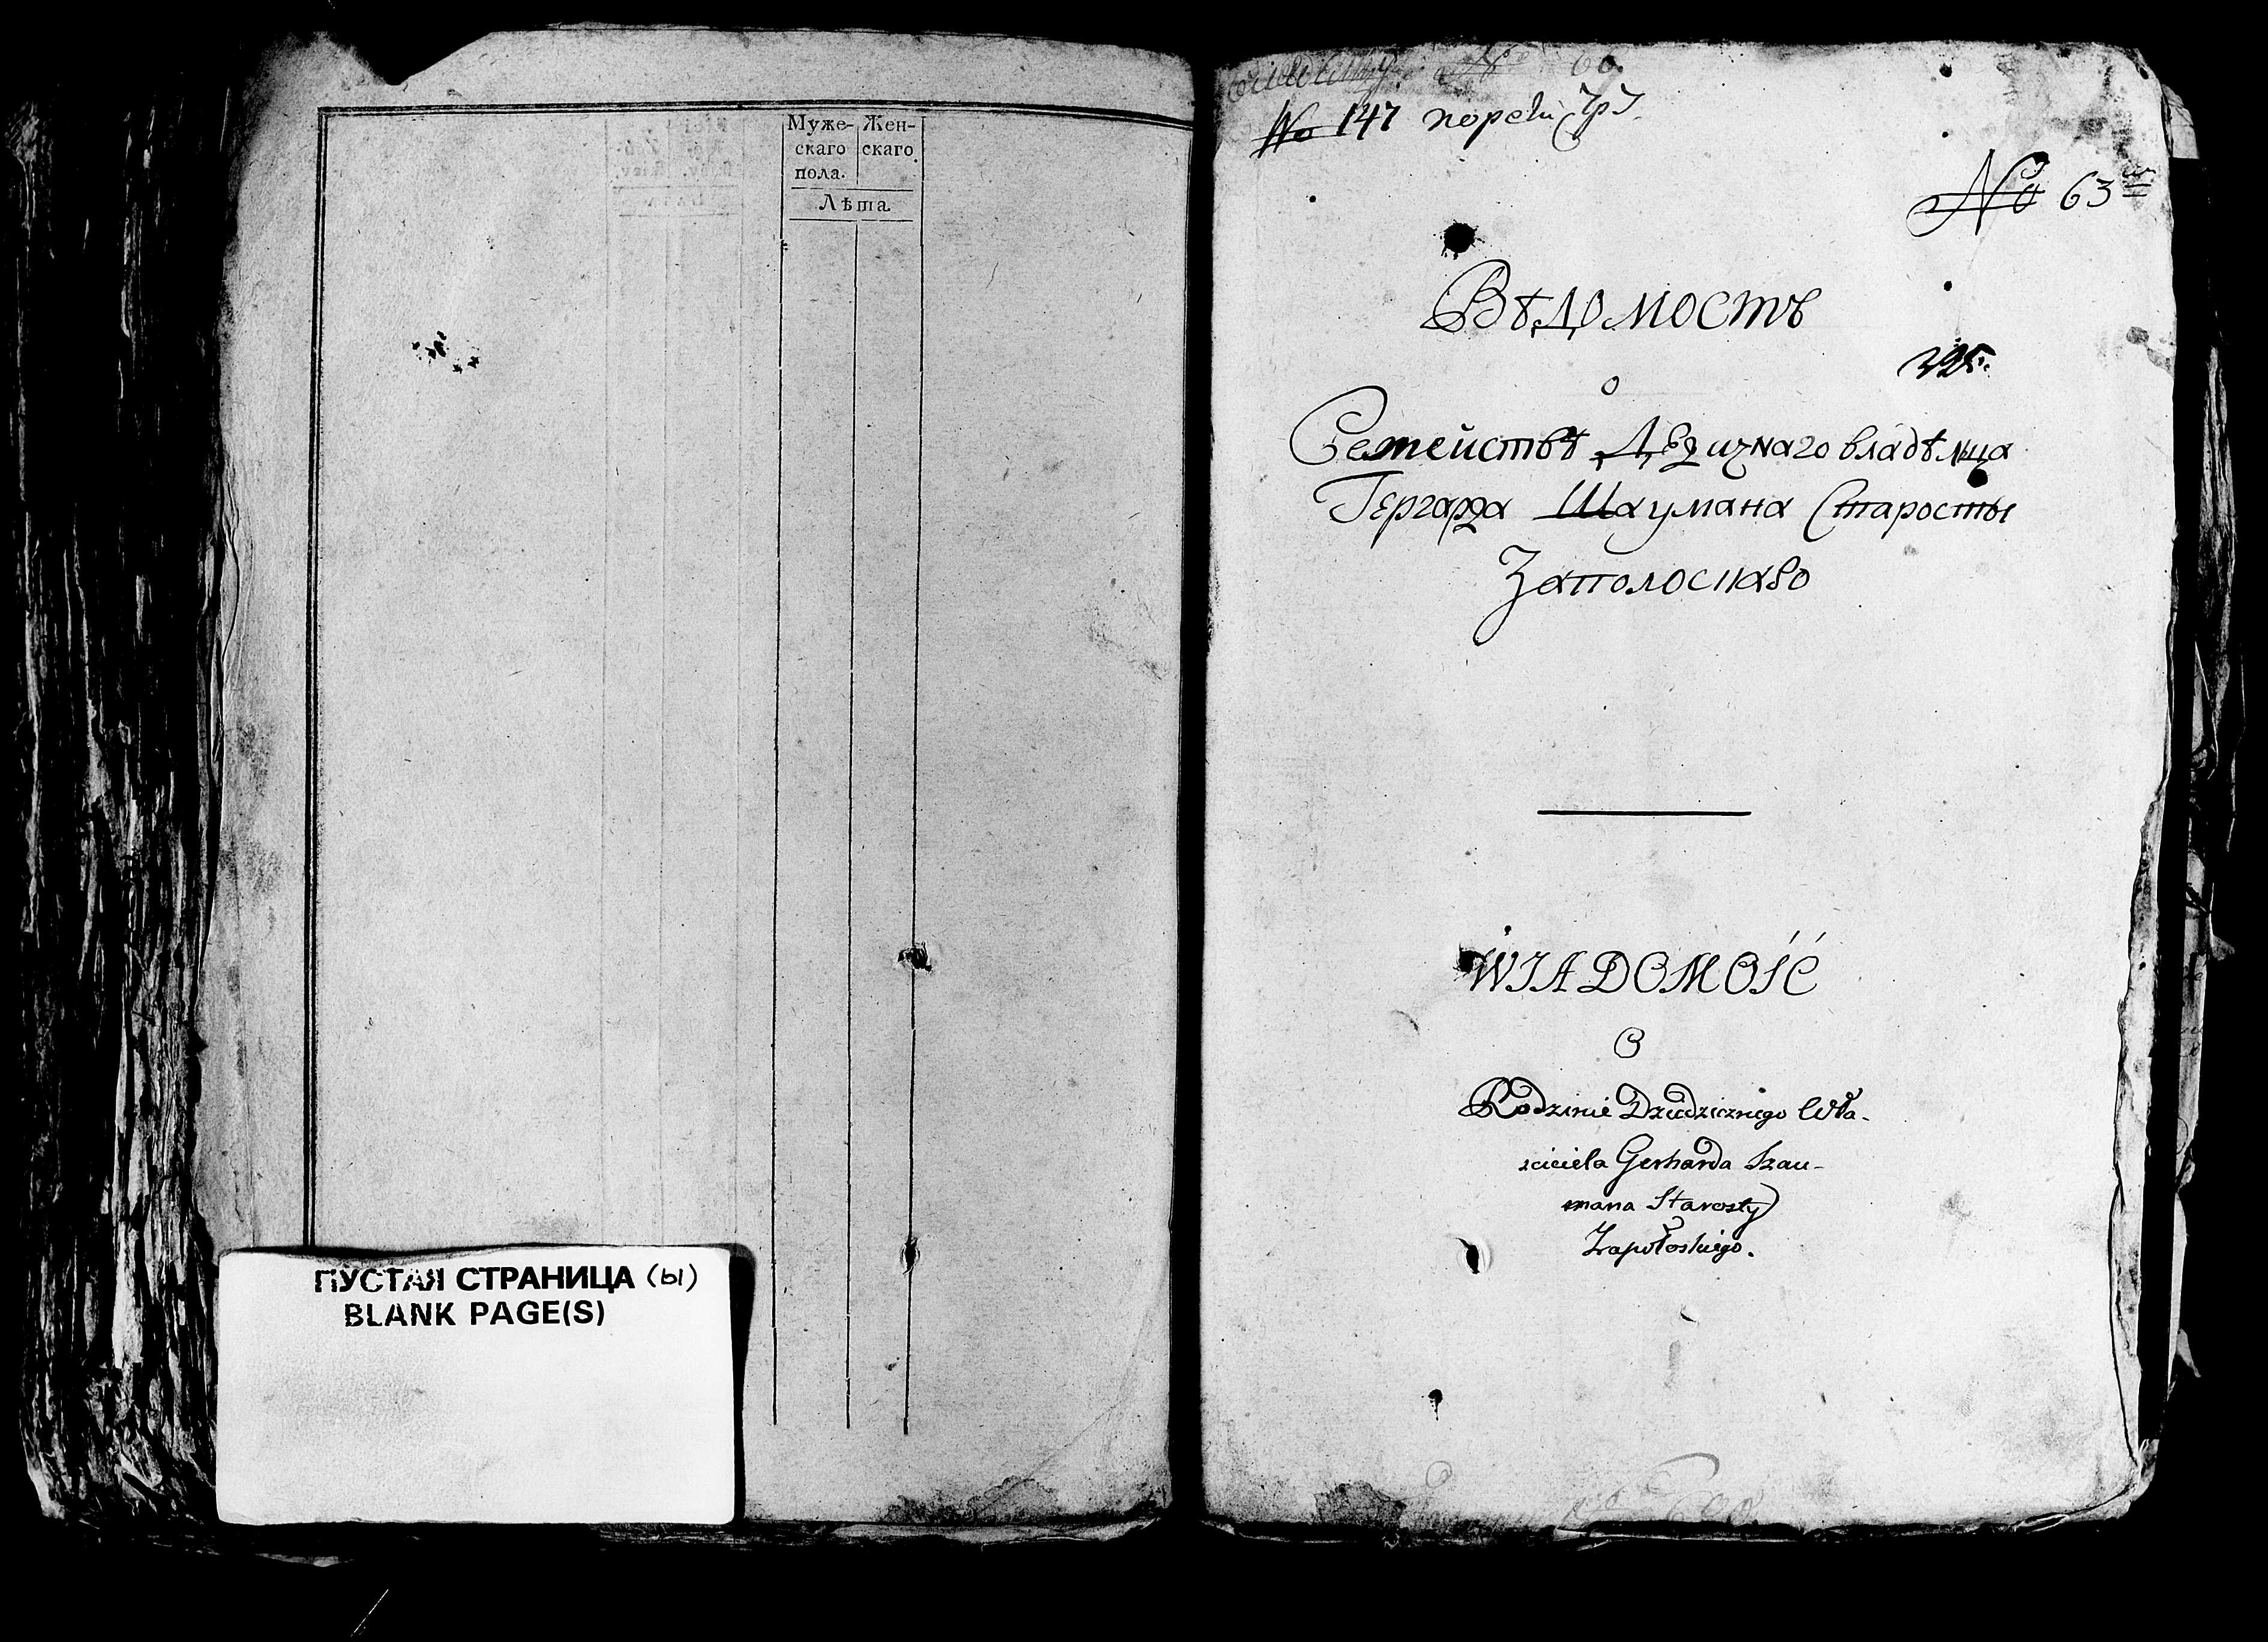 Муже- Жен-
скаго скаго
пола.
Лѣта
ПУСТАЯ СТРАНИЦА (ы)
BLANK PAGE(S)
№ 147
№ 63
Вѣдомость
о
Семействѣ Дѣдизнаго владѣльца
Гергарда Шаумана Старосты
Заполоскаго
WIADOMOŚĆ
O
Rodzinie Dziedzicznego Wła-
sciciela Gerharda Szau-
mana Starosty
Zapołoskiego.